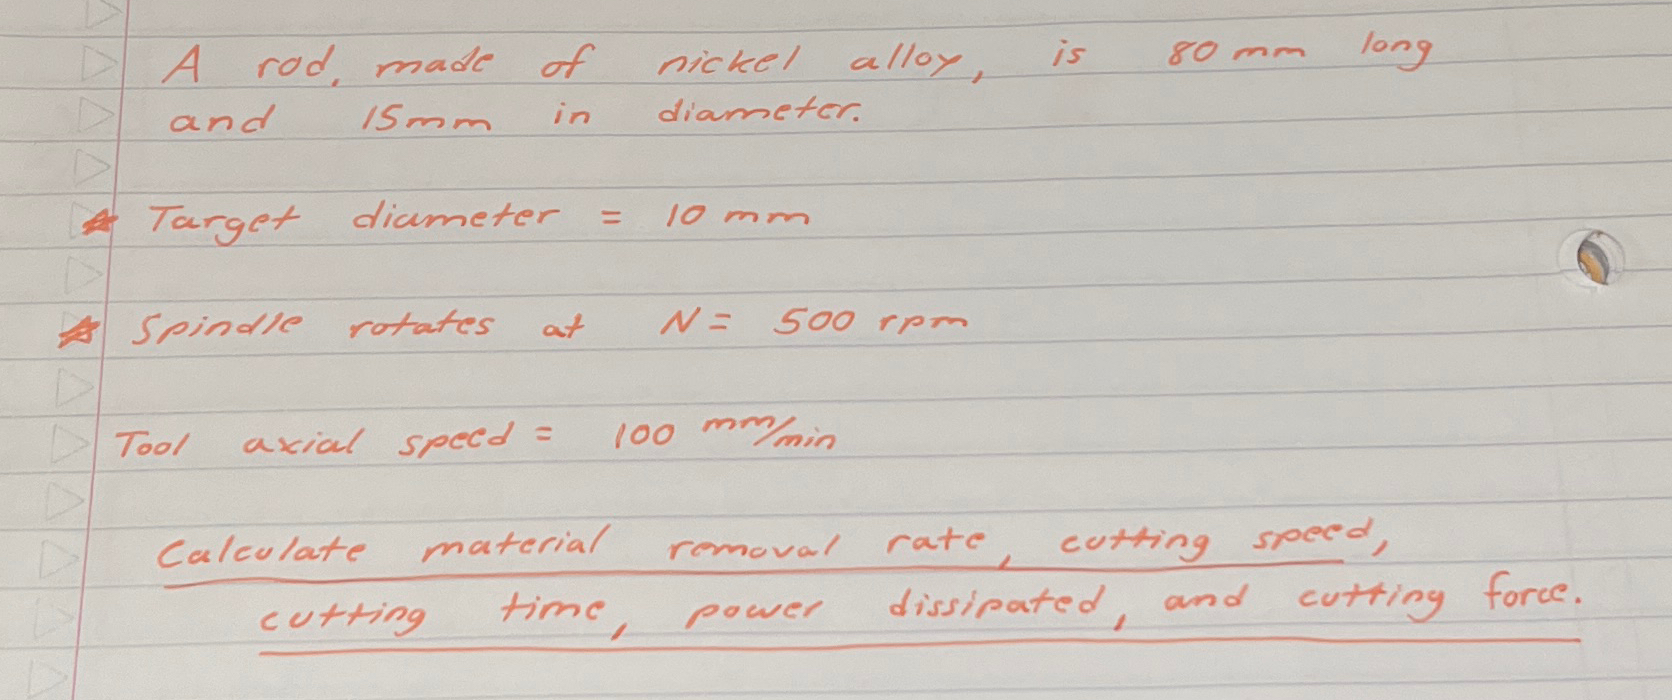 A rod, made of nickel alloy, is 80 mm long
and 15mm in diameter.
Target diameter = 10 mm
Spindle rotates at N = 500 rpm
Tool axial speed = 100 mm/min
Calculate material removal rate, cutting speed,
cutting time, power dissipated, and cutting force.